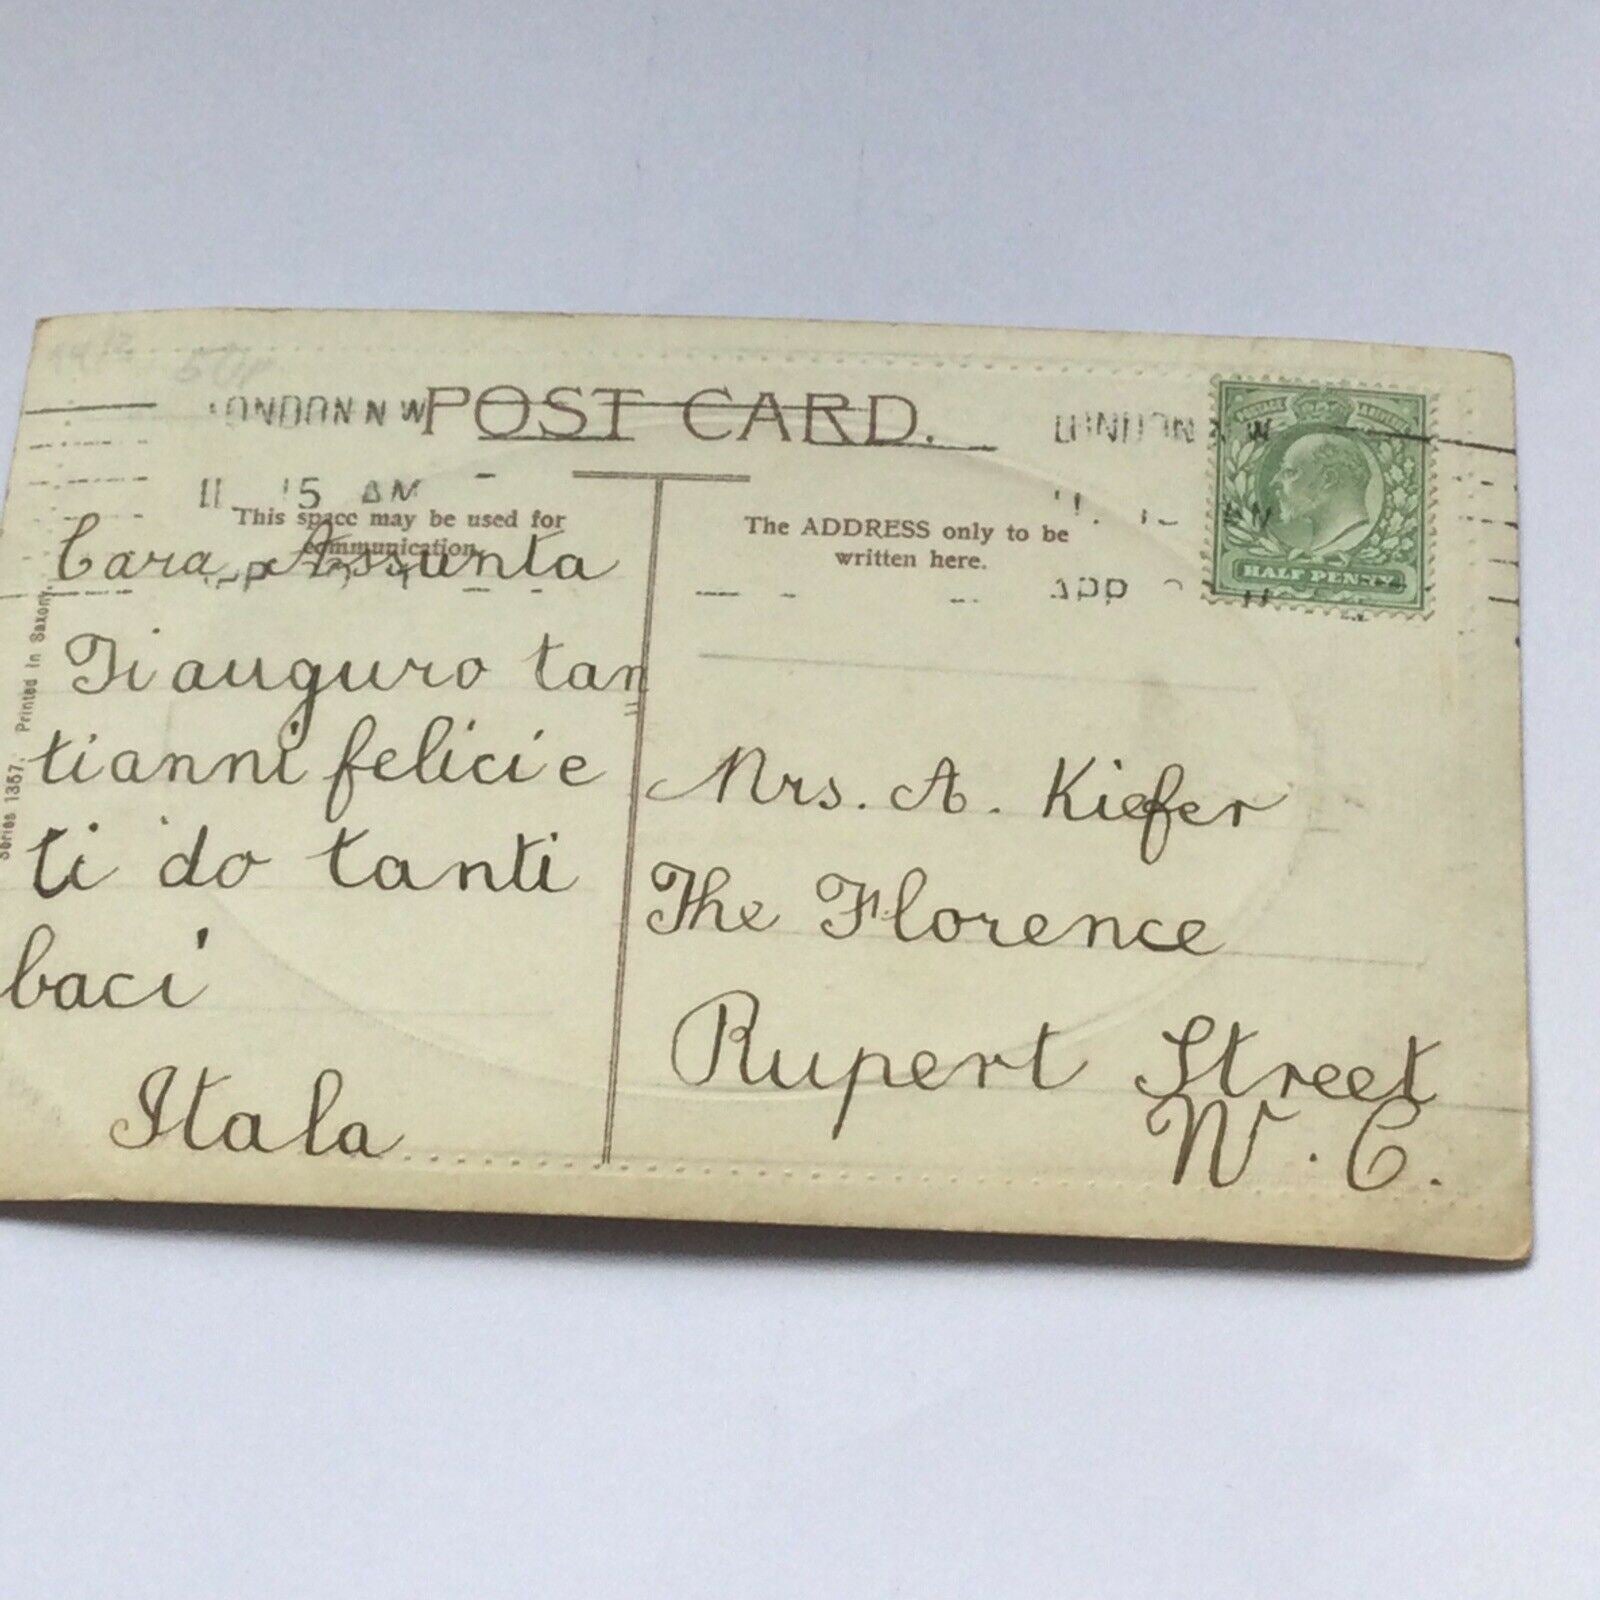 POST CARD.
LONDON N W
LONDON N W
11 15 AM
This space may be used for
communication.
The ADDRESS only to be
written here.
HALF PENNY
Series 1357. Printed in Saxony.
Cara Assunta
Ti auguro tan
ti anni felici e
ti do tanti
baci
Itala
Mrs. A. Kiefer
The Florence
Rupert Street
W. C.